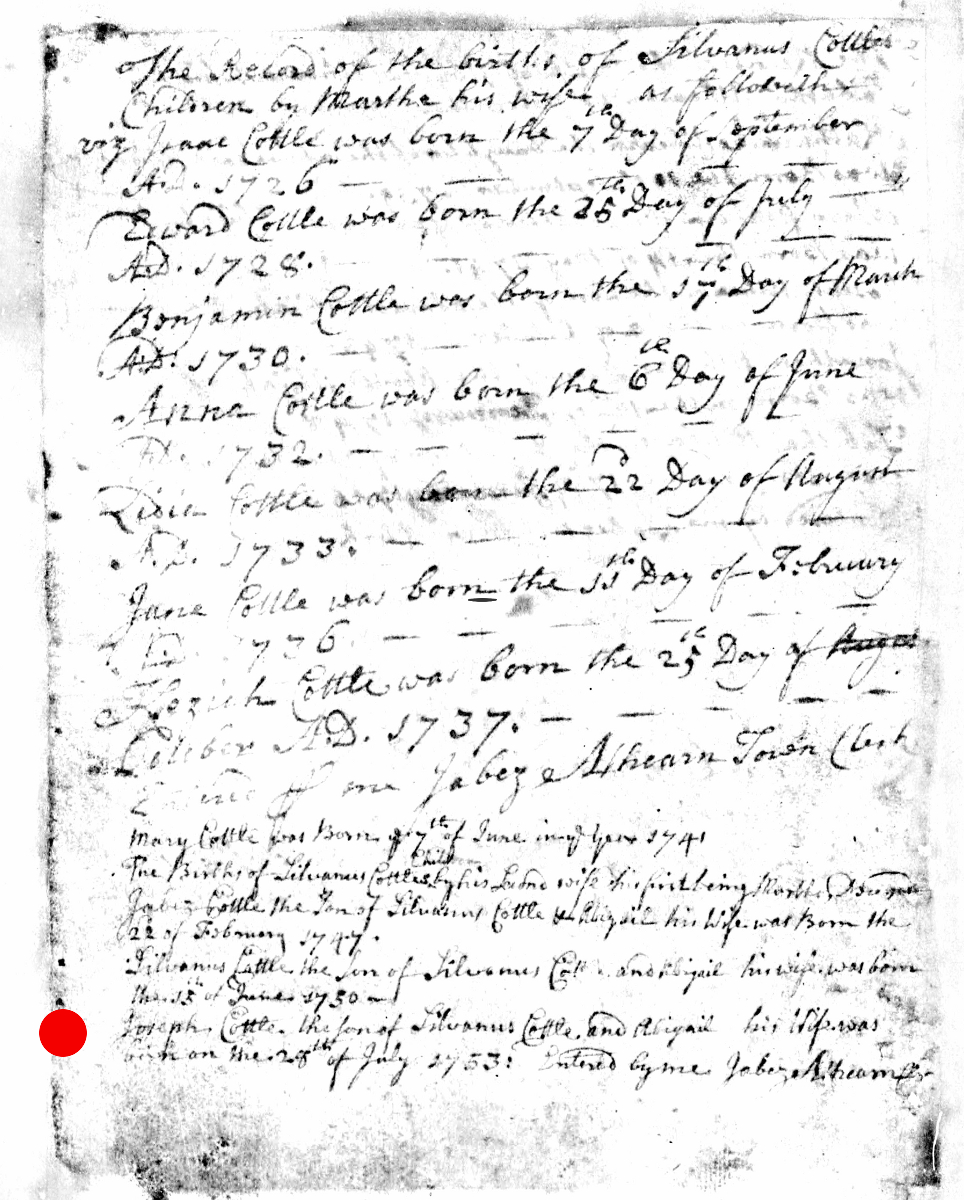 The Record of the births of Silvanus Cottles
Children by Martha his wife as followeth
viz Isaac Cottle was born the 7th Day of September
A.D. 1726
Edward Cottle was born the 25th Day of July
A.D. 1728.
Benjamin Cottle was born the 17th Day of March
A.D. 1730.
Anna Cottle was born the 6th Day of June
A.D. 1732.
Lidia Cottle was born the 22d Day of August
A.D. 1733.
Jane Cottle was born the 11th Day of Februury
A.D. 1736
Cottle was born the 25th Day of
October A.D. 1737.
Entred me Jabez Athearn Town Clerk
Mary Cottle was Born ye 7th of June in ye Year 1741
The Births of Silvanus Cottles Children by his Second wife his first being Martha
Jabez Cottle the Son of Silvanus Cottle & Abigail his Wife was Born the
22 of February 1747.
Silvanus Cottle the Son of Silvanus Cottle and Abigail his wife was born
the 15th of June 1750
Joseph Cottle the son of Silvanus Cottle and Abigail his Wife was
born on the 28th of July 1753: Entered by me Jabez Athearn